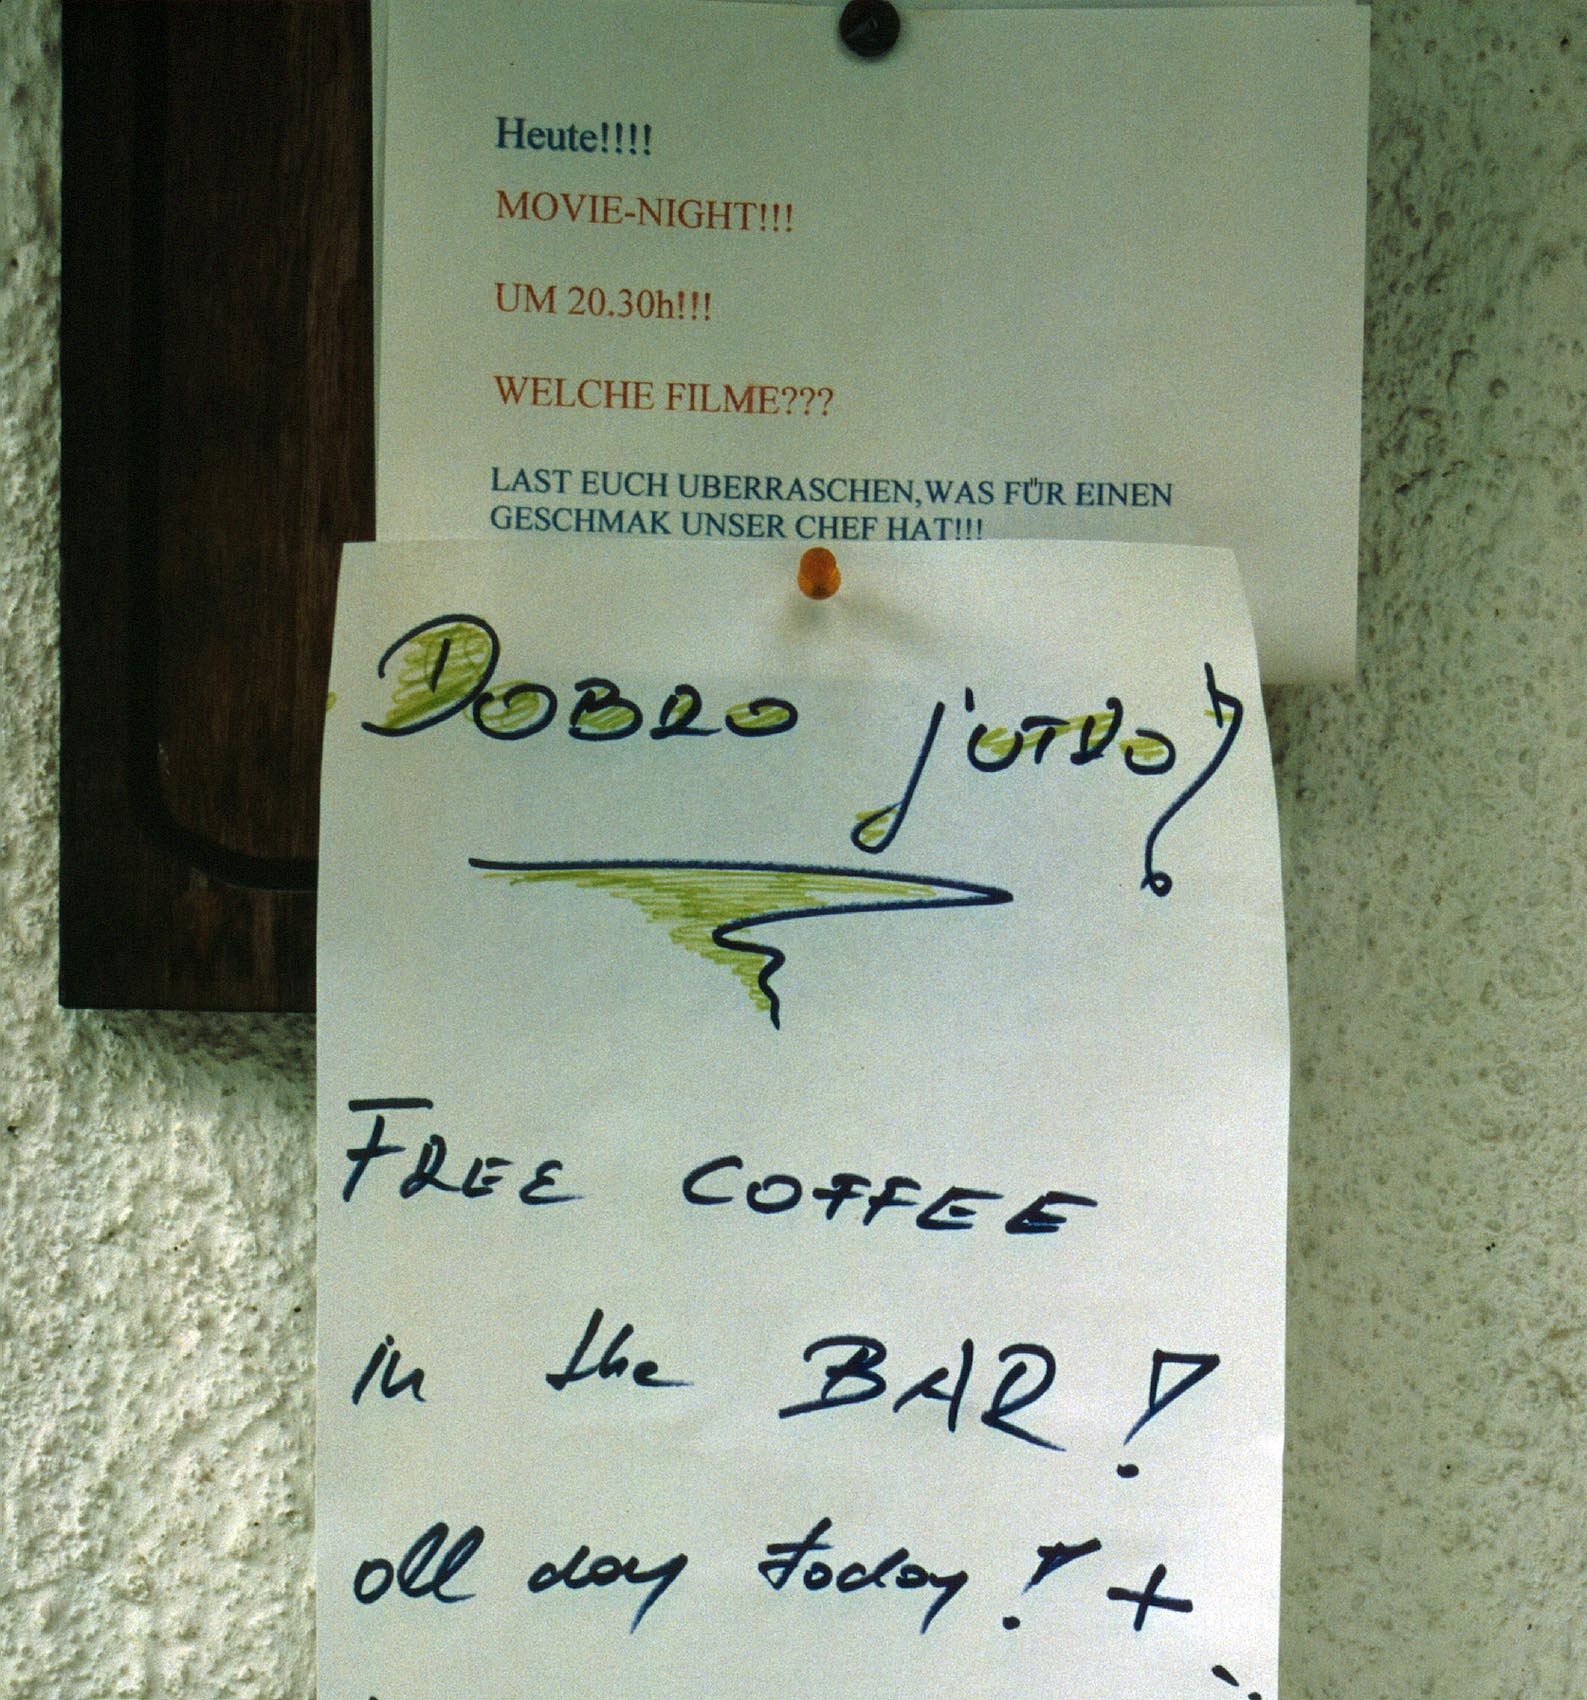 Heute!!!!
MOVIE-NIGHT!!!
UM 20.30h!!!
WELCHE FILME???
LAST EUCH UBERRASCHEN,WAS FÜR EINEN
GESCHMAK UNSER CHEF HAT!!!
DOBRO jUTRO!
FREE COFFEE
in the BAR!
all day today! +